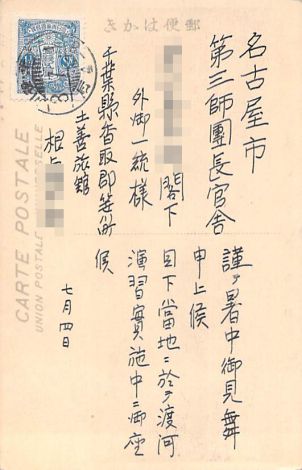 郵便はがき
名古屋市
第三師團長官舎
閣下
外御一統様
千葉縣香取郡笹川町
土善旅館
根上
七月四日
謹テ暑中御見舞
申上候
目下當地ニ於テ渡河
演習實施中ニ御座
候
CARTE POSTALE
UNION POSTALE UNIVERSELLE